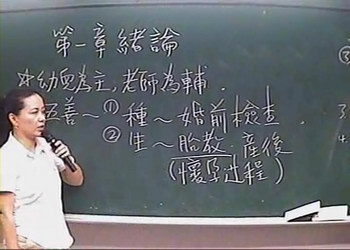 第一章緒論
※幼兒為主,老師為輔.
五善~①種~婚前檢查.
②生~胎教.產後
(懷孕过程)
③
3
4.